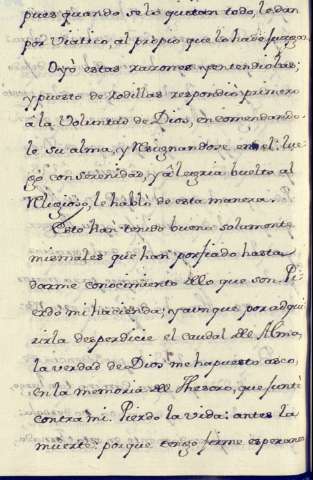 pues quando se lo quitan todo, le dan
por Viatico, al propio que lo ha de juzgar.
Oyó estas razones, y entendiolas;
y puesto de rodillas respondió primero
á la Voluntad de Dios, encomendando-
le su alma, y Resignandose en el: lue-
go con serenidad, y alegria buelto al
Religioso, le habló de esta manera.
Esto han tenido bueno solamente
mis males que han porfiado hasta
darme conocimiento dello que son. Pi-
erdo mi hacienda; y aunque por adqui-
rirla desperdicie el caudal del Alma,
la verdad de Dios me ha puesto asco,
en la memoria del Thesoro, que junté
contra mi. Pierdo la vida; antes la
muerte: porque tengo firme esperan-